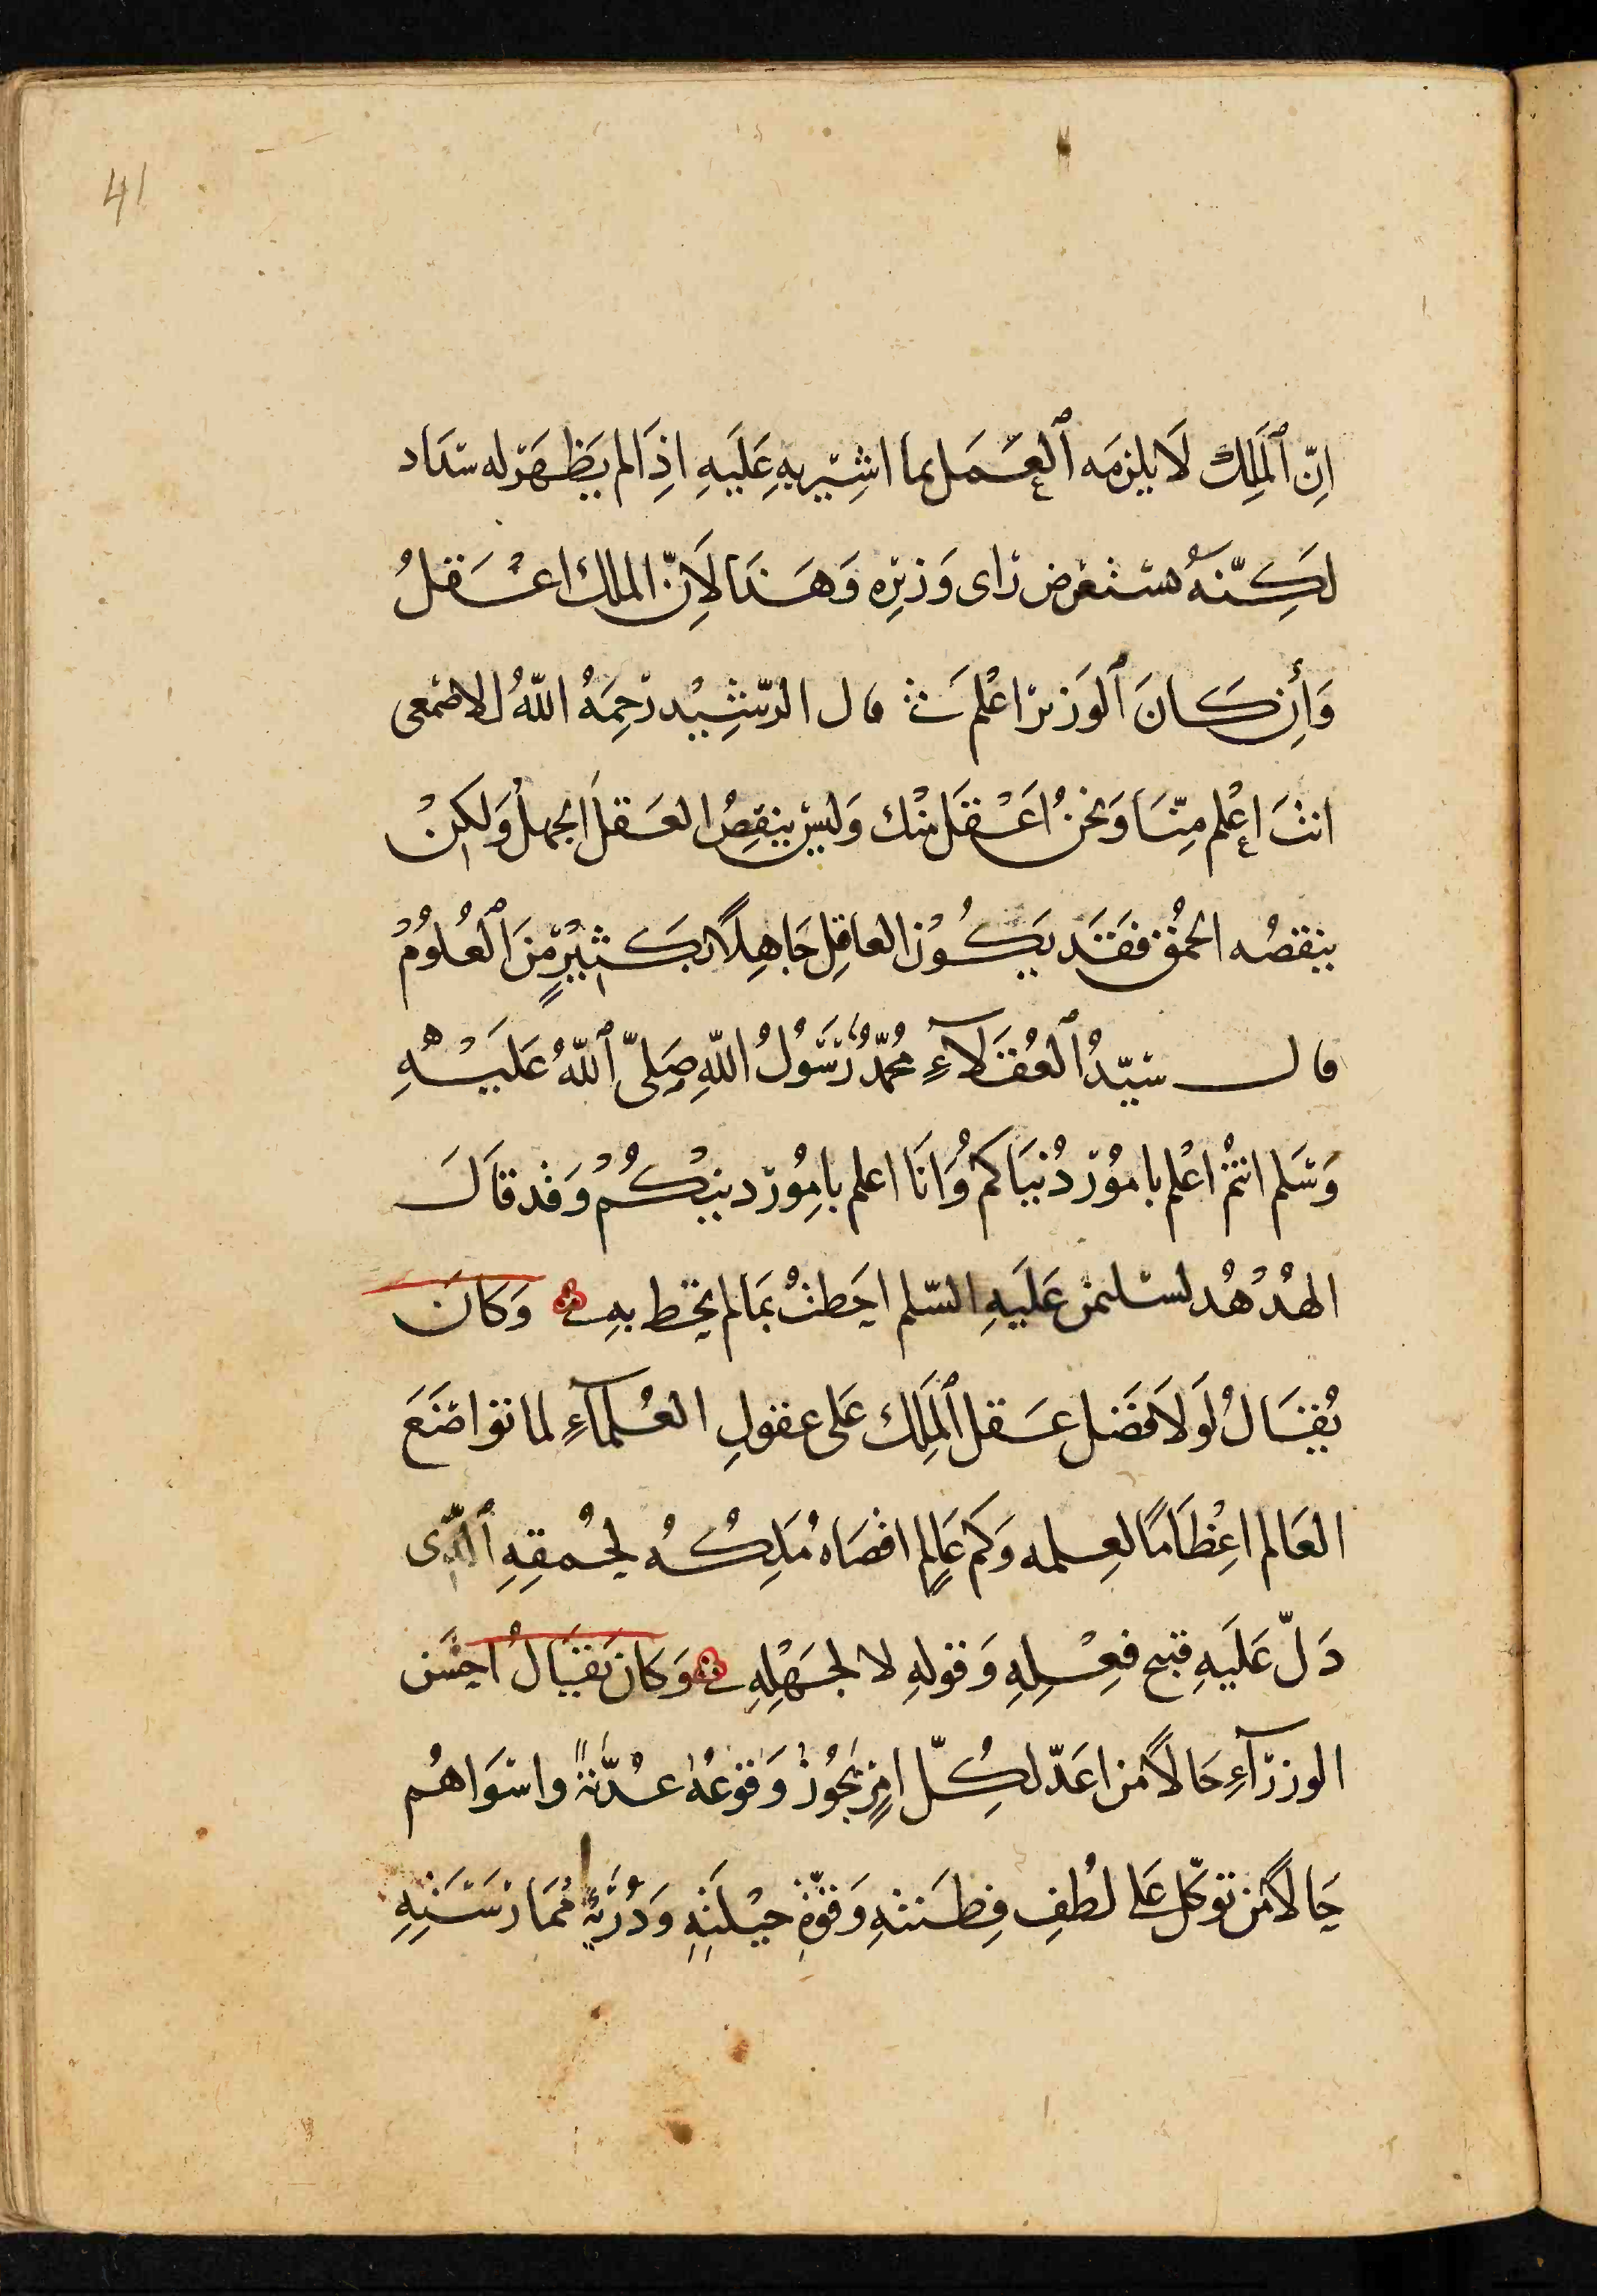 41
اِنّ ٱلمَلِك لَا يلزمَه ٱلعَمَل بما اشِيْر بهِ عَلَيهِ اذَا لم يَظهَر له سَدَاد
لَكِنّهُ يستَعْرِض رَاى وَزيرِه وَهَذا لَاِنّ الملك اعْقلُ
وَأِن كَانَ ٱلوَزير اعْلم قال الرّشِيْد رَحِمَهُ اللّهُ للاصْمَعى
انتَ اعْلم مِنّا وَنحنُ اَعْقَل مِنْك وَليسَ ينقِصُ العَقلَ الجهلُ وَلكِنْ
ينقصُه الحُمْق فقَد يَكُوْن العاقِل جَاهِلًا بكَثِيْرٍ مِّنَ ٱلعُلُوُمْ
قال سَيّدُ ٱلعُقَلآءِ مُحمّدٌ رَسَوُلُ اللّهِ صَلىّ ٱللّهُ عَلَيْهِ
وَسَلم انتُمْ اعْلم بامُوْر دُنيَاكم وَانَا اعلم بامِوُر دينِكُمْ وَقد قَالَ
الهُدْهُد لسليمن عَلَيهِ السّلم احَطتُ بمَا لم تحِط بهِ وَكانَ
يُقَالُ لَولَا فَضَل عَقل ٱلمَلِك عَلى عقولِ العُلمآءِ لما تواضَعَ
العَالم اعِظَامًا لعِلمه وَكم عَالِمٍ اقصَاه مَلِكُه لحُمقِهِ ٱلّذى
دَلّ عَلَيهِ قبح فِعْلِهِ وَقولهِ لا لجَهْلِهِ وَكانَ يُقَالُ احسَن
الوزرآءِ حَالًا من اعَدّ لكُلّ امرٍ يَجُوْز وَقوعُهُ عُدّةً واسوَاهُم
حَالًا مَن توكّل عَلى لُطفِ فِطَنتهِ وَقوّةِ حيْلَتهِ وَدُرْبَةِ مُمَارَسَتِهِ